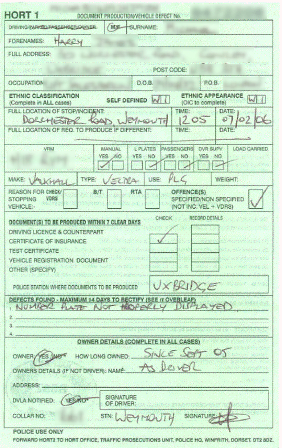 HORT 1 DOCUMENT PRODUCTION/VEHICLE DEFECT No.
SURNAME:
FORENAMES: HARRY
FULL ADDRESS:
POST CODE:
OCCUPATION: D.O.B. P.O.B.
ETHNIC CLASSIFICATION ETHNIC APPEARANCE
(Complete in ALL cases) SELF DEFINED W1 (OIC to complete) W1
FULL LOCATION OF STOP/INCIDENT: TIME: DATE:
DORCHESTER ROAD WEYMOUTH 1205 07/02/06
FULL LOCATION OF REQ. TO PRODUCE IF DIFFERENT: TIME: DATE:
VRM MANUAL L PLATES PASSENGERS DVR SUPV LOAD CARRIED
YES NO YES NO YES NO YES NO
MAKE: VAUXHALL TYPE: VECTRA USE: PLG WEIGHT:
REASON FOR STOPPING VEHICLE: CHECK VDRS B/T RTA OFFENCE(S) SPECIFIED/NON SPECIFIED (NOT INC. VEL + VDRS)
DOCUMENT(S) TO BE PRODUCED WITHIN 7 CLEAR DAYS CHECK RECORD DETAILS
DRIVING LICENCE & COUNTERPART
CERTIFICATE OF INSURANCE
TEST CERTIFICATE
VEHICLE REGISTRATION DOCUMENT
OTHER (SPECIFY)
POLICE STATION WHERE DOCUMENTS TO BE PRODUCED UXBRIDGE
DEFECTS FOUND - MAXIMUM 14 DAYS TO RECTIFY (SEE OVERLEAF)
1 NUMBER PLATE NOT PROPERLY DISPLAYED
2
3
4
OWNER DETAILS (COMPLETE IN ALL CASES)
OWNER YES/NOT HOW LONG OWNED: SINCE SEPT 05
OWNERS DETAILS (IF NOT DRIVER): NAME: AS DRIVER
ADDRESS:
DVLA NOTIFIED: YES/NO SIGNATURE OF DRIVER:
COLLAR NO: STN: WEYMOUTH SIGNATURE
POLICE USE ONLY
FORWARD HORT2 TO HORT OFFICE, TRAFFIC PROSECUTIONS UNIT, POLICE HQ, WINFRITH, DORSET. DT2 8DZ.